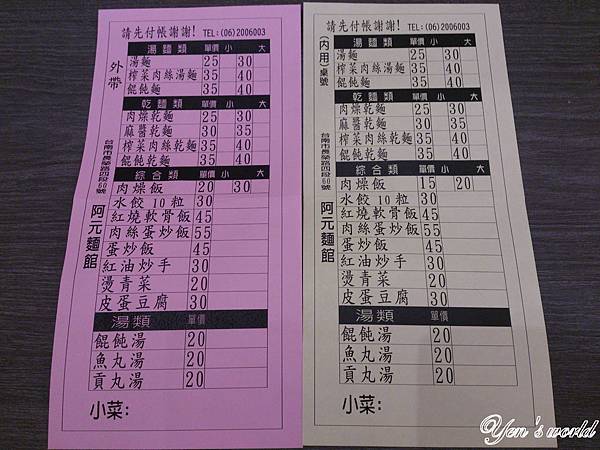 請先付帳謝謝! TEL:(06)2006003
外帶
湯麵類 單價 小 大
湯麵 25 30
榨菜肉絲湯麵 35 40
餛飩麵 35 40
乾麵類 單價 小 大
肉燥乾麵 25 30
麻醬乾麵 30 35
榨菜肉絲乾麵 35 40
餛飩乾麵 35 40
綜合類 單價 小 大
肉燥飯 20 30
水餃10粒 30
紅燒軟骨飯 45
肉絲蛋炒飯 55
蛋炒飯 45
紅油炒手 30
燙青菜 20
皮蛋豆腐 30
湯類 單價
餛飩湯 20
魚丸湯 20
貢丸湯 20
小菜:
台南市長榮路四段60號
阿元麵館
請先付帳謝謝! TEL:(06)2006003
(內用)桌號
湯麵類 單價 小 大
湯麵 25 30
榨菜肉絲湯麵 35 40
餛飩麵 35 40
乾麵類 單價 小 大
肉燥乾麵 25 30
麻醬乾麵 30 35
榨菜肉絲乾麵 35 40
餛飩乾麵 35 40
綜合類 單價 小 大
肉燥飯 15 20
水餃10粒 30
紅燒軟骨飯 45
肉絲蛋炒飯 55
蛋炒飯 45
紅油炒手 30
燙青菜 20
皮蛋豆腐 30
湯類 單價
餛飩湯 20
魚丸湯 20
貢丸湯 20
小菜:
台南市長榮路四段60號
阿元麵館
Yen's world